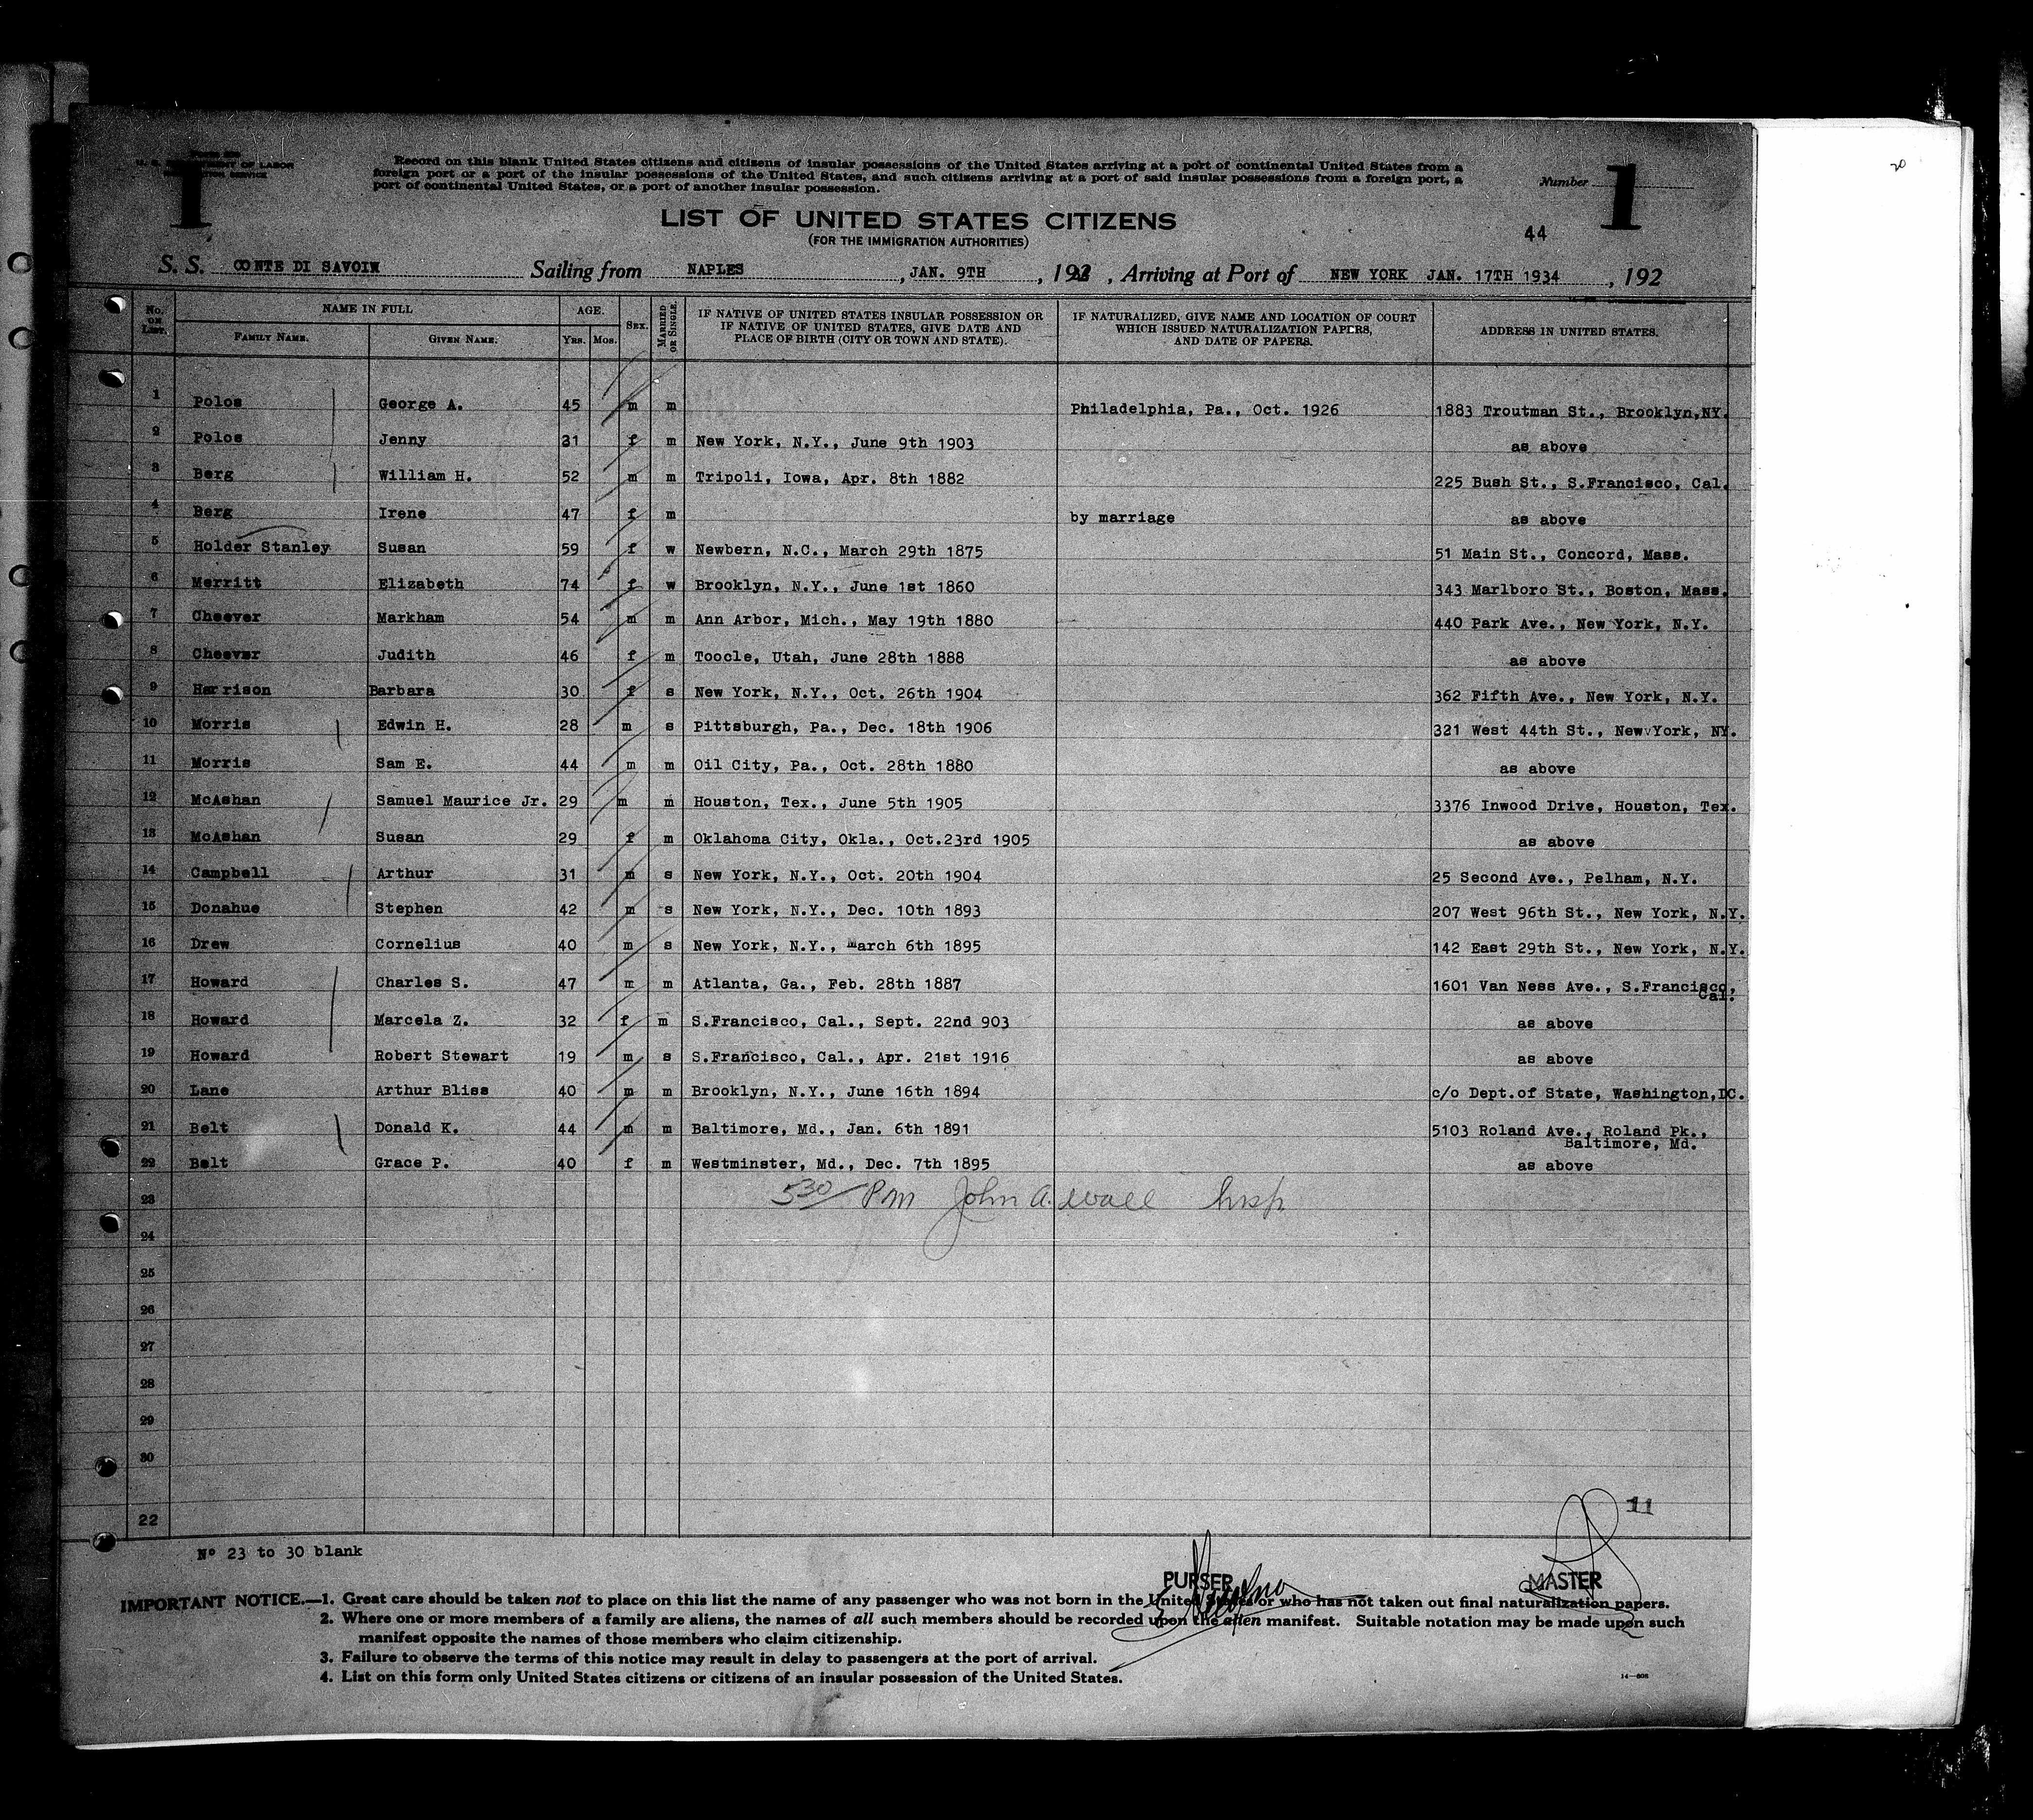 U. S. DEPARTMENT OF LABOR
IMMIGRATION SERVICE
I
Record on this blank United States citizens and citizens of insular possessions of the United States arriving at a port of continental United States from a
foreign port or a port of the insular possessions of the United States, and such citizens arriving at a port of said insular possessions from a foreign port, a
port of continental United States, or a port of another insular possession.
Number 1
20
LIST OF UNITED STATES CITIZENS
(FOR THE IMMIGRATION AUTHORITIES)
44
S. S. CONTE DI SAVOIA Sailing from NAPLES, JAN. 9TH, 192 , Arriving at Port of NEW YORK JAN. 17TH 1934, 192
No. ON LIST. NAME IN FULL AGE. SEX. MARRIED OR SINGLE. IF NATIVE OF UNITED STATES INSULAR POSSESSION OR IF NATIVE OF UNITED STATES, GIVE DATE AND PLACE OF BIRTH (CITY OR TOWN AND STATE). IF NATURALIZED, GIVE NAME AND LOCATION OF COURT WHICH ISSUED NATURALIZATION PAPERS, AND DATE OF PAPERS. ADDRESS IN UNITED STATES.
FAMILY NAME. GIVEN NAME. YRS. MOS.
1 Polos George A. 45 m m Philadelphia, Pa., Oct. 1926 1883 Troutman St., Brooklyn,NY.
2 Polos Jenny 31 f m New York, N.Y., June 9th 1903 as above
3 Berg William H. 52 m m Tripoli, Iowa, Apr. 8th 1882 225 Bush St., S.Francisco, Cal.
4 Berg Irene 47 f m by marriage as above
5 Holder Stanley Susan 59 f w Newbern, N.C., March 29th 1875 51 Main St., Concord, Mass.
6 Merritt Elizabeth 74 f w Brooklyn, N.Y., June 1st 1860 343 Marlboro St., Boston, Mass.
7 Cheever Markham 54 m m Ann Arbor, Mich., May 19th 1880 440 Park Ave., New York, N.Y.
8 Cheever Judith 46 f m Toocle, Utah, June 28th 1888 as above
9 Harrison Barbara 30 f s New York, N.Y., Oct. 26th 1904 362 Fifth Ave., New York, N.Y.
10 Morris Edwin H. 28 m s Pittsburgh, Pa., Dec. 18th 1906 321 West 44th St., New York, NY.
11 Morris Sam E. 44 m m Oil City, Pa., Oct. 28th 1880 as above
12 McAshan Samuel Maurice Jr. 29 m m Houston, Tex., June 5th 1905 3376 Inwood Drive, Houston, Tex.
13 McAshan Susan 29 f m Oklahoma City, Okla., Oct.23rd 1905 as above
14 Campbell Arthur 31 m s New York, N.Y., Oct. 20th 1904 25 Second Ave., Pelham, N.Y.
15 Donahue Stephen 42 m s New York, N.Y., Dec. 10th 1893 207 West 96th St., New York, N.Y.
16 Drew Cornelius 40 m s New York, N.Y., March 6th 1895 142 East 29th St., New York, N.Y.
17 Howard Charles S. 47 m m Atlanta, Ga., Feb. 28th 1887 1601 Van Ness Ave., S.Francisco,
Cal.
18 Howard Marcela Z. 32 f m S.Francisco, Cal., Sept. 22nd 903 as above
19 Howard Robert Stewart 19 m s S.Francisco, Cal., Apr. 21st 1916 as above
20 Lane Arthur Bliss 40 m m Brooklyn, N.Y., June 16th 1894 c/o Dept.of State, Washington,DC.
21 Belt Donald K. 44 m m Baltimore, Md., Jan. 6th 1891 5103 Roland Ave., Roland Pk.,
Baltimore, Md.
22 Belt Grace P. 40 f m Westminster, Md., Dec. 7th 1895 as above
23 530 PM John A. Wall Insp
24
25
26
27
28
29
30
11
22
Nº 23 to 30 blank
PURSER MASTER
IMPORTANT NOTICE.—1. Great care should be taken not to place on this list the name of any passenger who was not born in the United States or who has not taken out final naturalization papers.
2. Where one or more members of a family are aliens, the names of all such members should be recorded upon the alien manifest. Suitable notation may be made upon such
manifest opposite the names of those members who claim citizenship.
3. Failure to observe the terms of this notice may result in delay to passengers at the port of arrival.
4. List on this form only United States citizens or citizens of an insular possession of the United States.
14—808